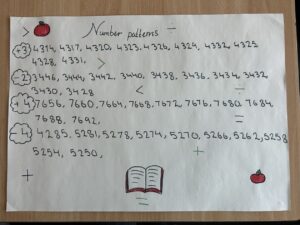 > Number patterns —
+3 4314, 4317, 4320, 4323, 4326, 4329, 4332, 4325
4328, 4331, >
-2 3446, 3444, 3442, 3440, 3438, 3436, 3434, 3432
3430, 3428 < —
+4 7656, 7660, 7664, 7668, 7672, 7676, 7680, 7684
7688, 7692, =
-4 4285, 5281, 5278, 5274, 5270, 5266, 5262, 5258
5254, 5250,
+
+ =